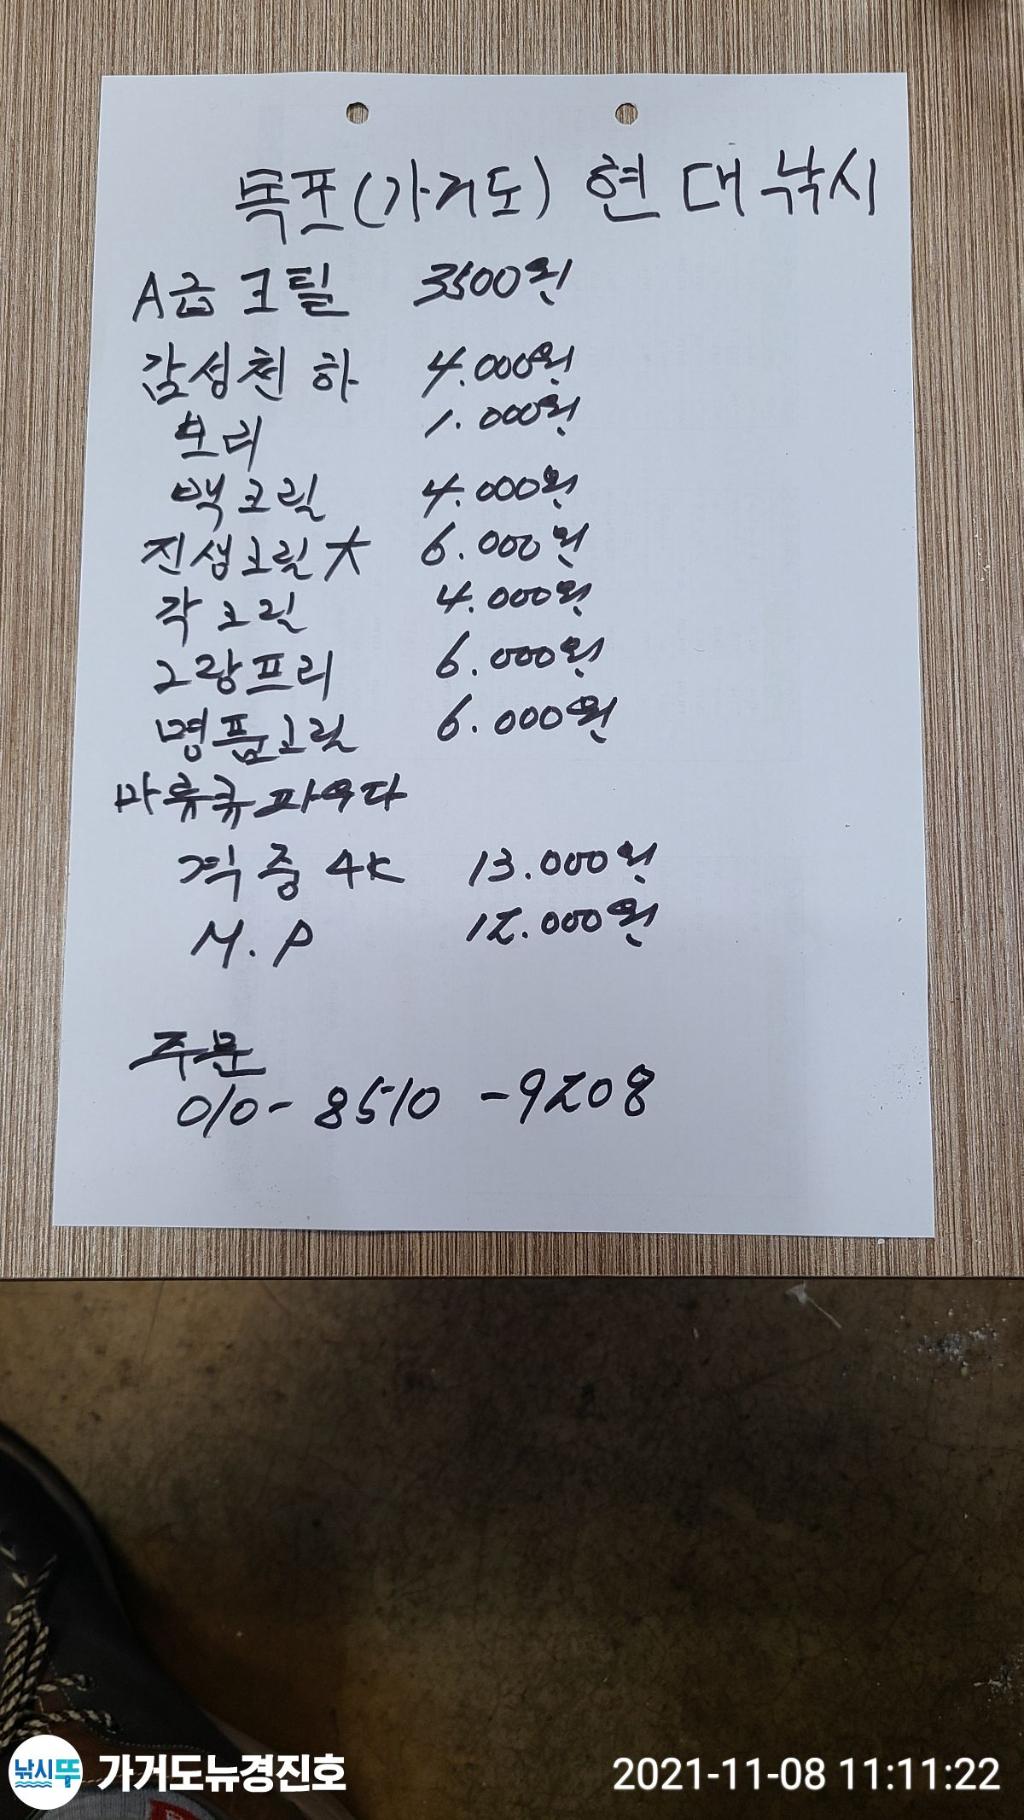 목포(가거도) 현대낚시
A급 크릴 3500원
감성천하 4.000원
보리 1.000원
백크릴 4.000원
진생크릴 大 6.000원
각크릴 4.000원
그랑프리 6.000원
명품크릴 6.000원
마류큐파우다
격중 4K 13.000원
M.P 12.000원
주문
010-8510-9208
낚시뚜 가거도뉴경진호 2021-11-08 11:11:22